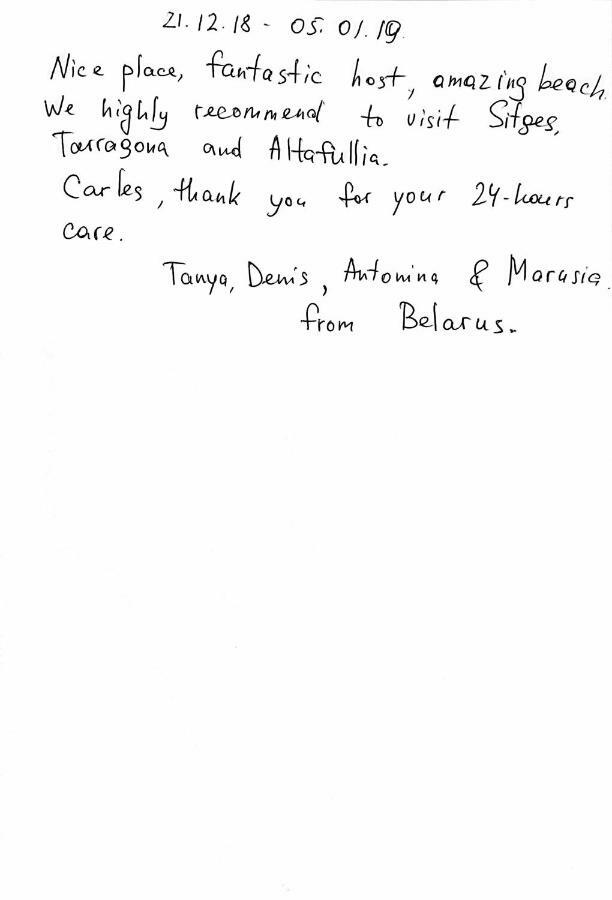 21.12.18 - 05.01.19.
Nice place, fantastic host, amazing beach.
We highly recommend to visit Sitges,
Tarragona and Altafullia.
Carles, thank you for your 24-hours
care.
Tanya, Denis, Antonina & Marusia
from Belarus.